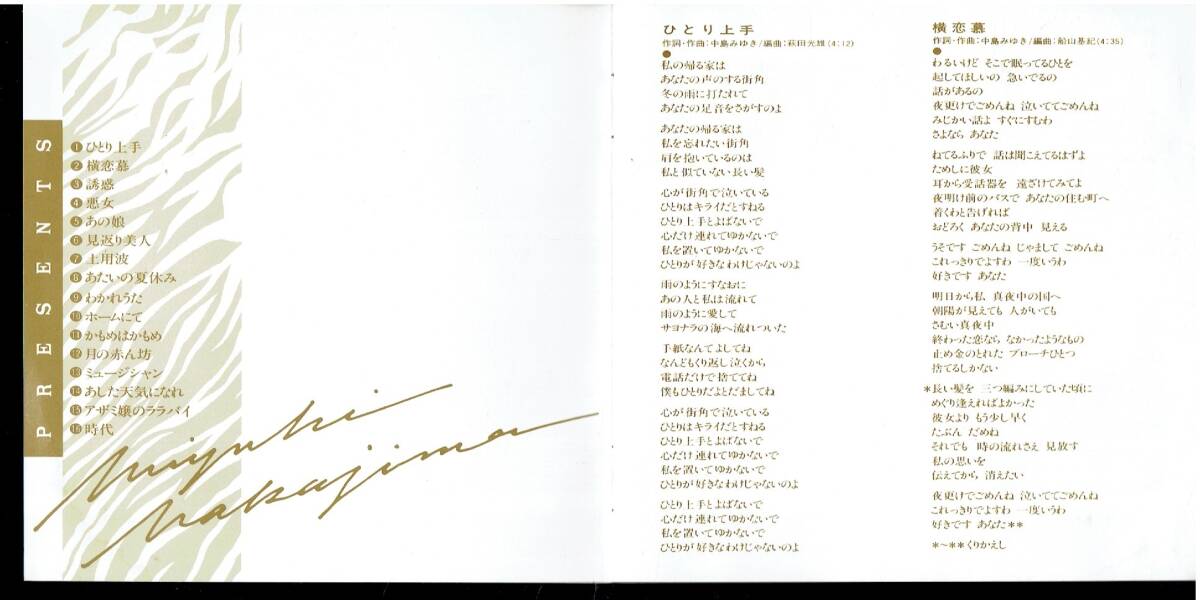 PRESENTS
❶ひとり上手
❷横恋慕
❸誘惑
❹悪女
❺あの娘
❻見返り美人
❼土用波
❽あたいの夏休み
❾わかれうた
❿ホームにて
⓫かもめはかもめ
⓬月の赤ん坊
⓭ミュージシャン
⓮あした天気になれ
⓯アザミ嬢のララバイ
⓰時代
Miyuki
Nakajima
ひとり上手
作詞・作曲:中島みゆき/編曲:萩田光雄(4:12)
●
私の帰る家は
あなたの声のする街角
冬の雨に打たれて
あなたの足音をさがすのよ
あなたの帰る家は
私を忘れたい街角
肩を抱いているのは
私と似ていない長い髪
心が街角で泣いている
ひとりはキライだとすねる
ひとり上手とよばないで
心だけ連れてゆかないで
私を置いてゆかないで
ひとりが好きなわけじゃないのよ
雨のようにすなおに
あの人と私は流れて
雨のように愛して
サヨナラの海へ流れついた
手紙なんてよしてね
なんどもくり返し泣くから
電話だけで捨ててね
僕もひとりだよとだましてね
心が街角で泣いている
ひとりはキライだとすねる
ひとり上手とよばないで
心だけ連れてゆかないで
私を置いてゆかないで
ひとりが好きなわけじゃないのよ
ひとり上手とよばないで
心だけ連れてゆかないで
私を置いてゆかないで
ひとりが好きなわけじゃないのよ
横恋慕
作詞・作曲:中島みゆき/編曲:船山基紀(4:35)
●
わるいけど そこで眠ってるひとを
起してほしいの 急いでるの
話があるの
夜更けでごめんね 泣いててごめんね
みじかい話よ すぐにすむわ
さよなら あなた
ねてるふりで 話は聞こえてるはずよ
ためしに彼女
耳から受話器を 遠ざけてみてよ
夜明け前のバスで あなたの住む町へ
着くわと告げれば
おどろく あなたの背中 見える
うそです ごめんね じゃまして ごめんね
これっきりでよすわ 一度いうわ
好きです あなた
明日から私 真夜中の国へ
朝陽が見えても 人がいても
さむい真夜中
終わった恋なら なかったようなもの
止め金のとれた ブローチひとつ
捨てるしかない
*長い髪を 三つ編みにしていた頃に
めぐり逢えればよかった
彼女より もう少し早く
たぶん だめね
それでも 時の流れさえ 見放す
私の思いを
伝えてから 消えたい
夜更けでごめんね 泣いててごめんね
これっきりでよすわ 一度いうわ
好きです あなた**
*~**くりかえし